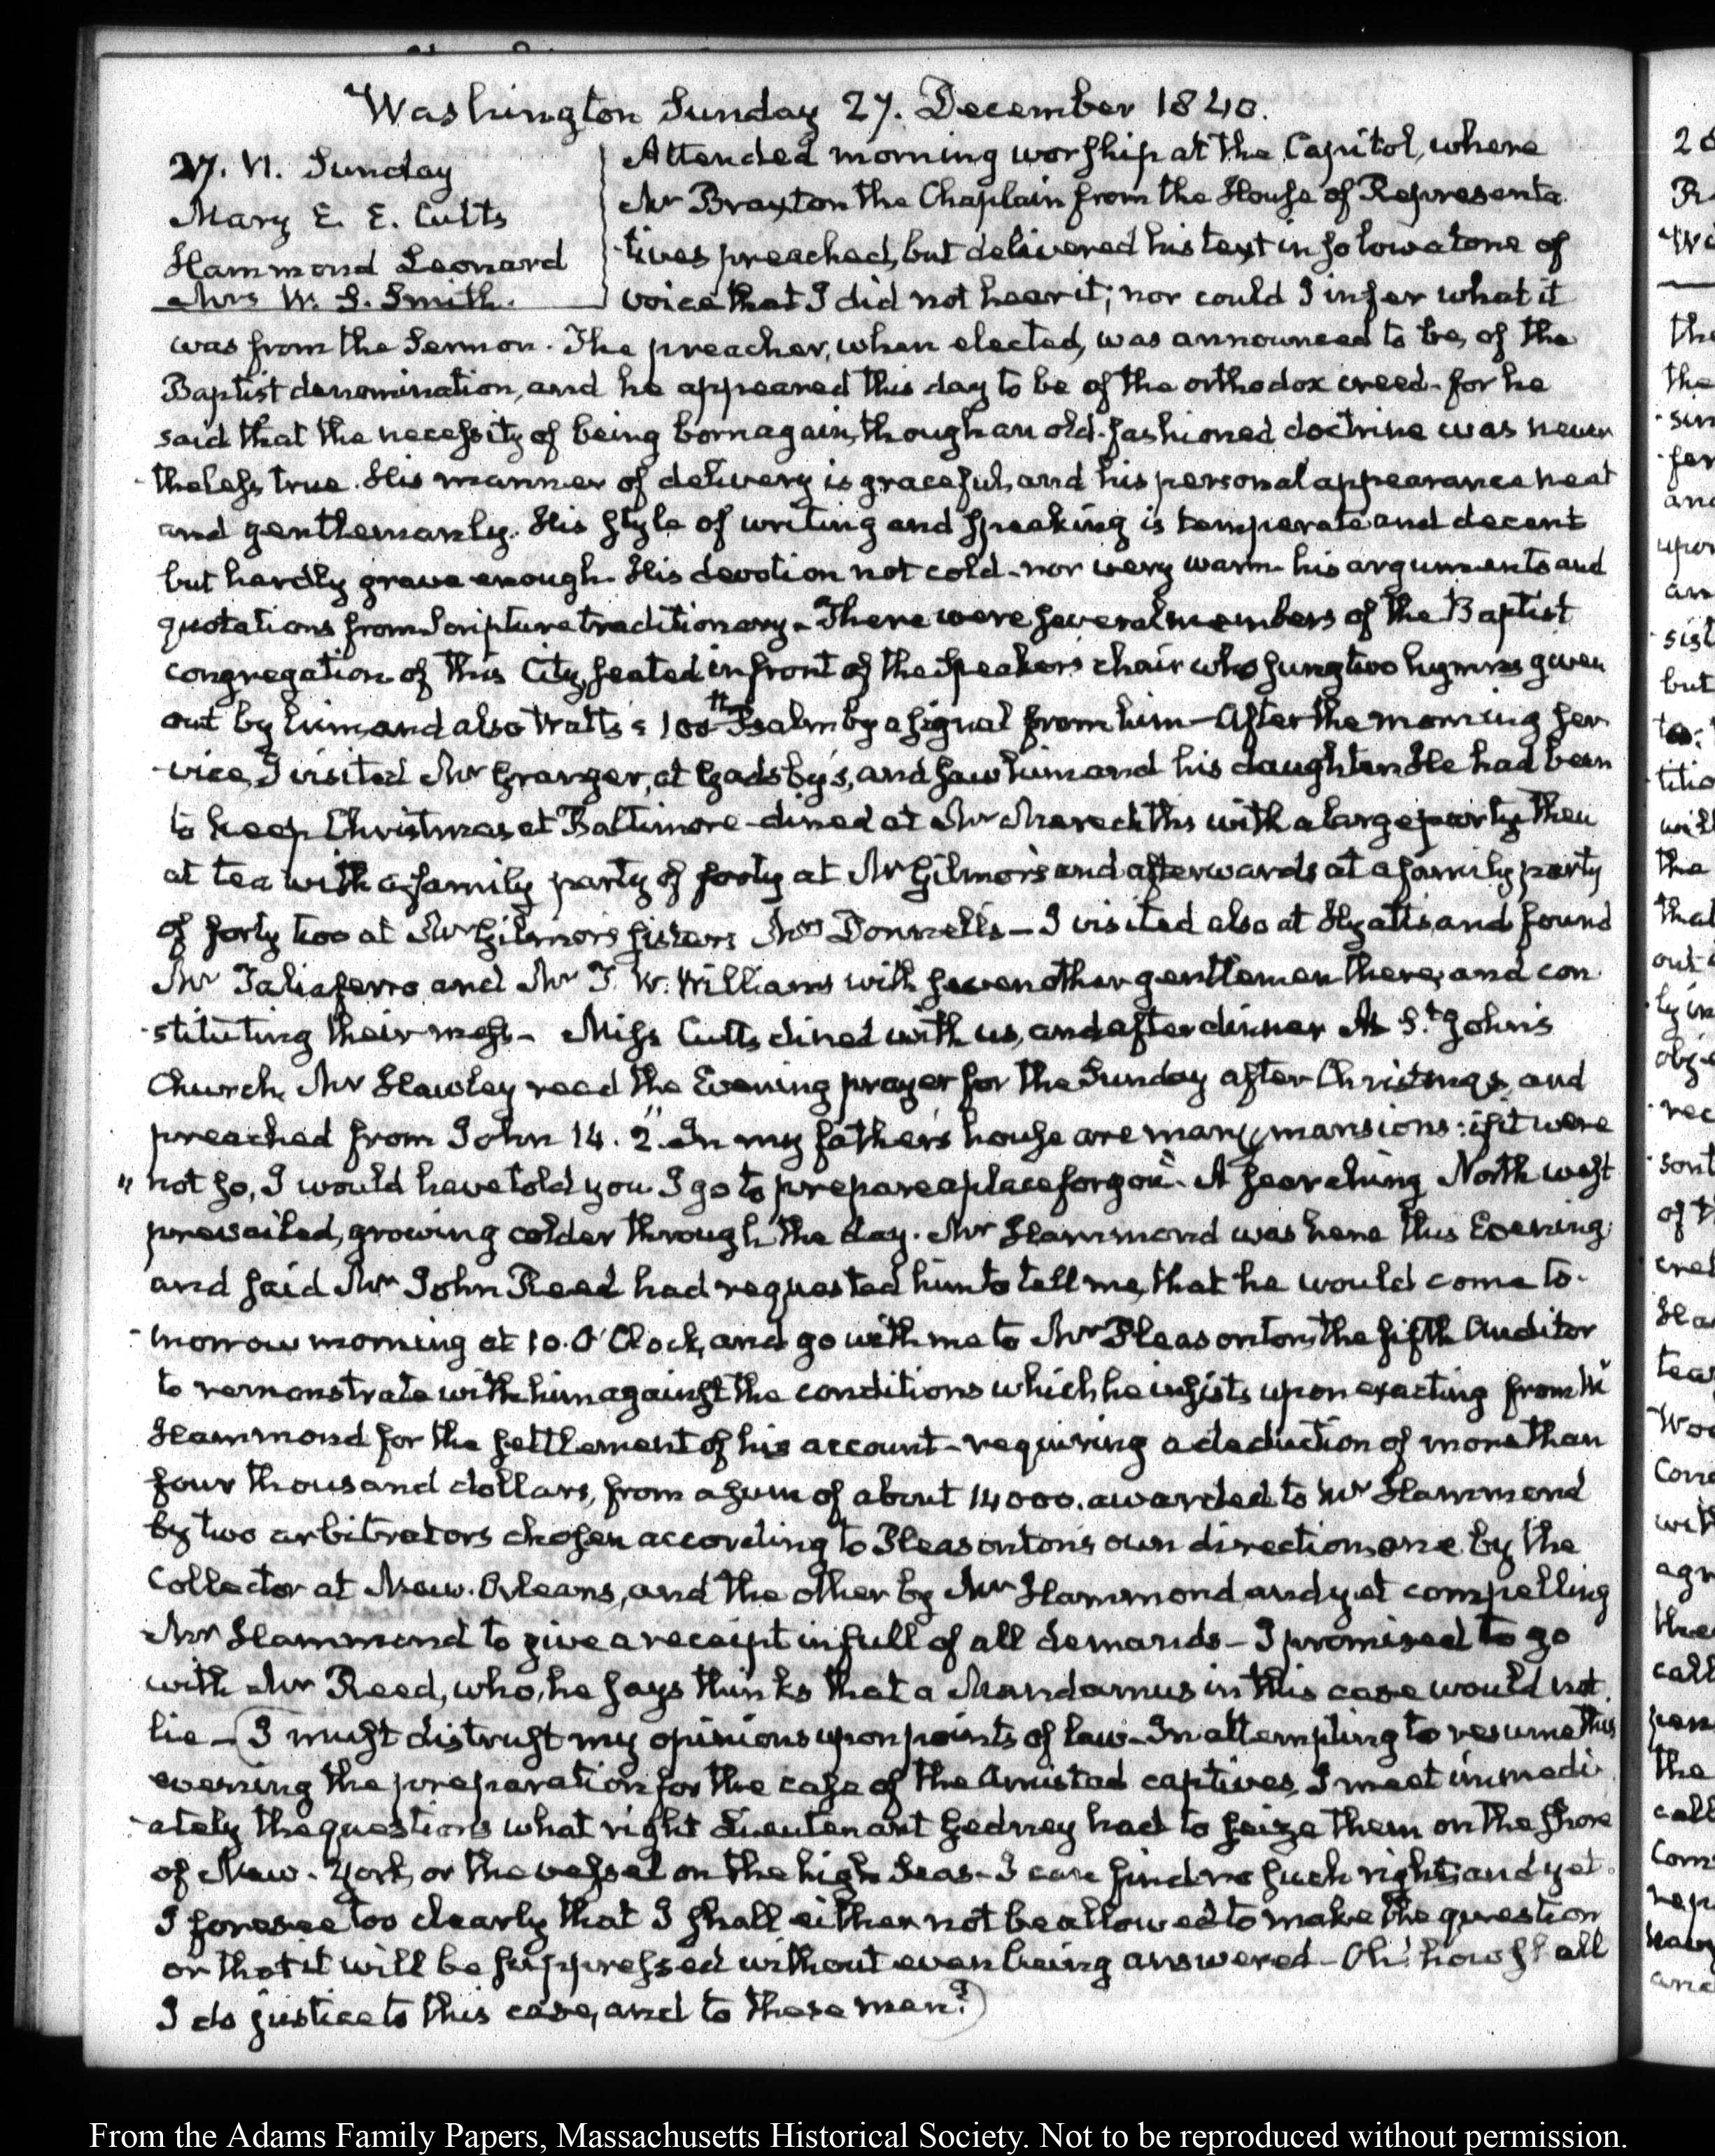 Washington Sunday 27. December 1840.
27. VI. Sunday
Mary E. E. Cutts
Hammond Leonard
Mrs W. S. Smith.
Attended morning worship at the Capitol, where
Mr Braxton the Chaplain from the House of Representa
-tives preached, but delivered his text in so low a tone of
voice that I did not hear it; nor could I infer what it
was from the Sermon. The preacher, when elected, was announced to be, of the
Baptist denomination, and he appeared this day to be of the orthodox creed - for he
said that the necessity of being born again, though an old-fashioned doctrine was never
-theless true. His manner of delivery is graceful, and his personal appearance neat
and gentlemanly. His style of writing and speaking is temperate and decent
but hardly grave enough. His devotion not cold - nor very warm - his arguments and
quotations from Scripture traditionary - There were several members of the Baptist
congregation of this City, seated in front of the Speaker's chair who sung two hymns given
out by him, and also Watts's 100th Psalm by a signal from him - After the morning ser
-vice, I visited Mr Granger, at Gadsby's, and saw him and his daughter. He had been
to keep Christmas at Baltimore - dined at Mr Meredith's with a large party, then
at tea with a family party of forty at Mr Gilmor's and afterwards at a family party
of forty two at Mr Gilmor's sister's Mrs Donnell's - I visited also at Hyatt's and found
Mr Taliaferro and Mr T. W. Williams with seven other gentlemen there, and con
-stituting their mess - Miss Cutts dined with us, and after dinner At St. John's
Church, Mr Hawley read the Evening prayer for the Sunday after Christmas, and
preached from John 14. 2. "In my father's house are many mansions: if it were
" not so, I would have told you. I go to prepare a place for you" - A searching North west
prevailed, growing colder through the day. Mr Hammond was here this Evening;
and said Mr John Reed had requested him to tell me, that he would come to-
-morrow morning at 10. O'Clock, and go with me to Mr Pleasonton, the fifth Auditor
to remonstrate with him against the conditions which he insists upon exacting from Mr
Hammond for the settlement of his account - requiring a deduction of more than
four thousand dollars, from a sum of about 14000. awarded to Mr Hammond
by two arbitrators chosen according to Pleasonton's own direction, one by the
Collector at New-Orleans, and the other by Mr Hammond, and yet compelling
Mr Hammond to give a receipt in full of all demands - I promised to go
with Mr Reed, who, he says thinks that a Mandamus in this case would not
lie - (I must distrust my opinions upon points of law - In attempting to resume this
evening the preparation for the case of the Amistad captives, I meet immedi
-ately the questions what right Lieutenant Gedney had to seize them on the shore
of New-York, or the vessel on the high Seas - I can find no such right; and yet
I foresee too clearly that I shall either not be allowed to make the question
or that it will be suppressed without even being answered - Oh! how shall
I do justice to this case, and to these men?)
From the Adams Family Papers, Massachusetts Historical Society. Not to be reproduced without permission.